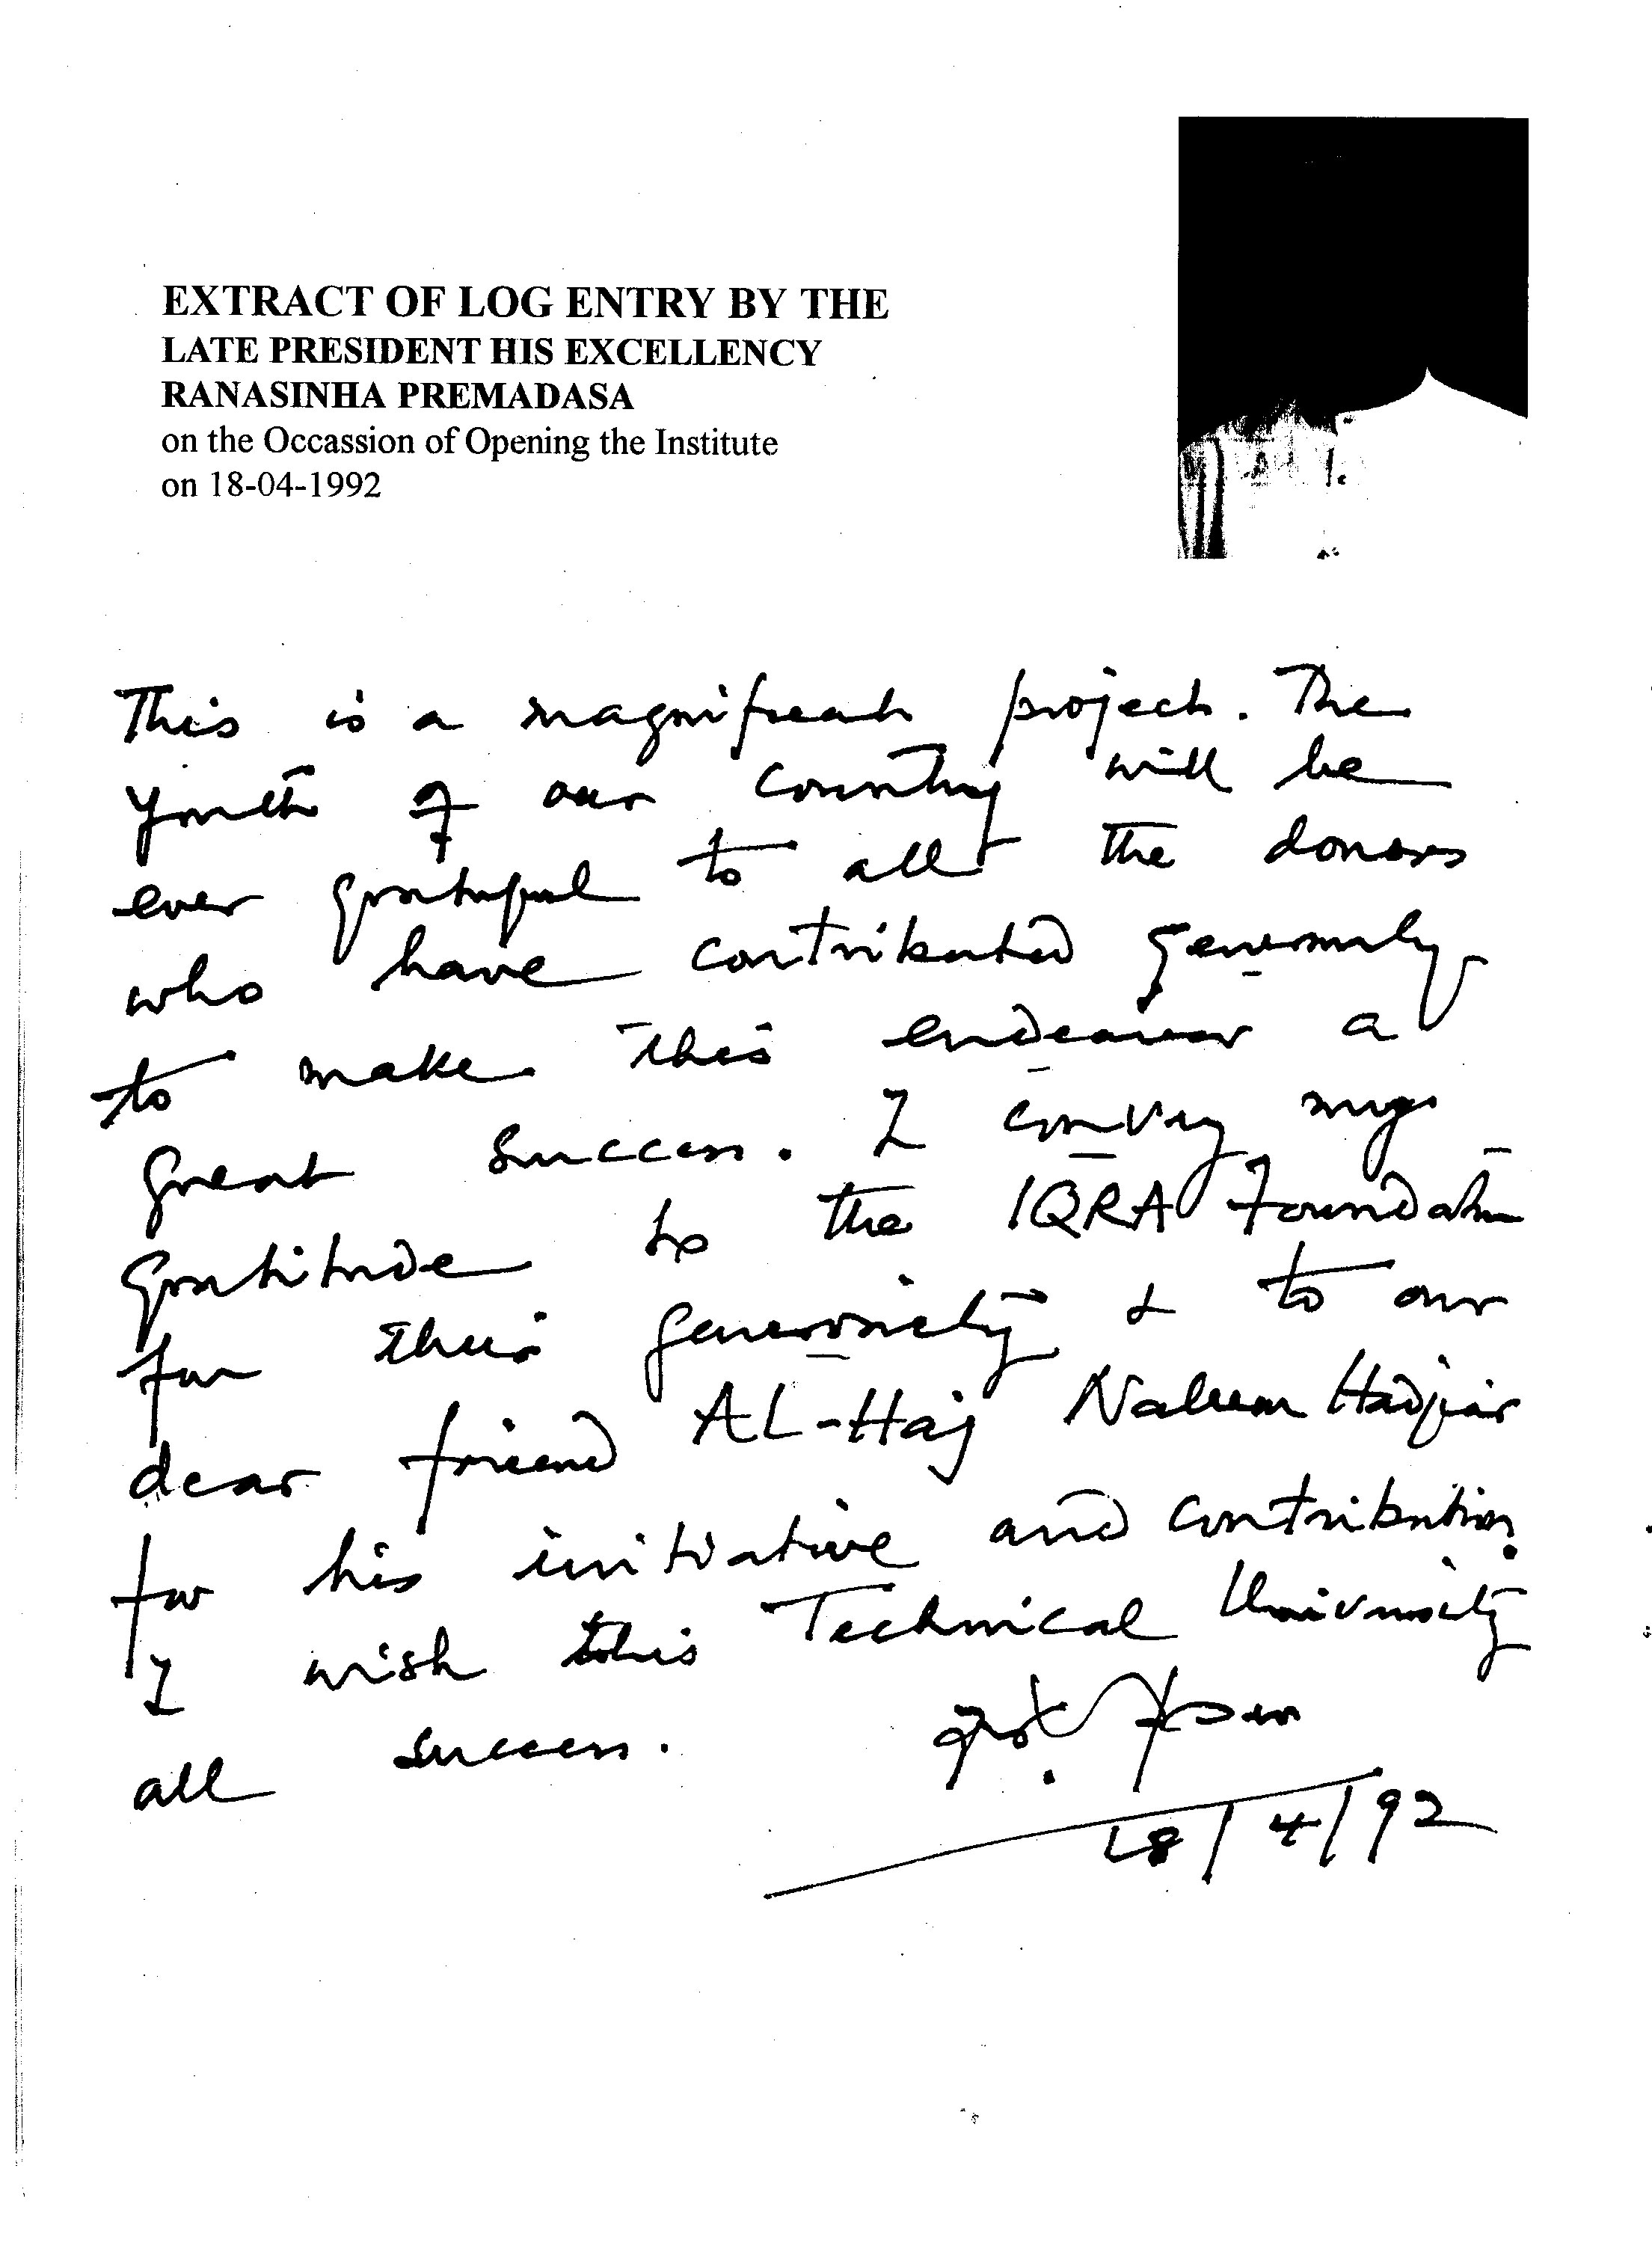 EXTRACT OF LOG ENTRY BY THE
LATE PRESIDENT HIS EXCELLENCY
RANASINHA PREMADASA
on the Occassion of Opening the Institute
on 18-04-1992
This is a magnificent project. The
youth of our country will be
ever grateful to all the donors
who have contributed generously
to make this endeavour a
great success. I convey my
gratitude to the IQRA Foundation
for their generosity & to our
dear friend AL-Haj Naleem Hadjiar
for his initiative and contribution.
I wish this Technical University
all success.
18/4/92